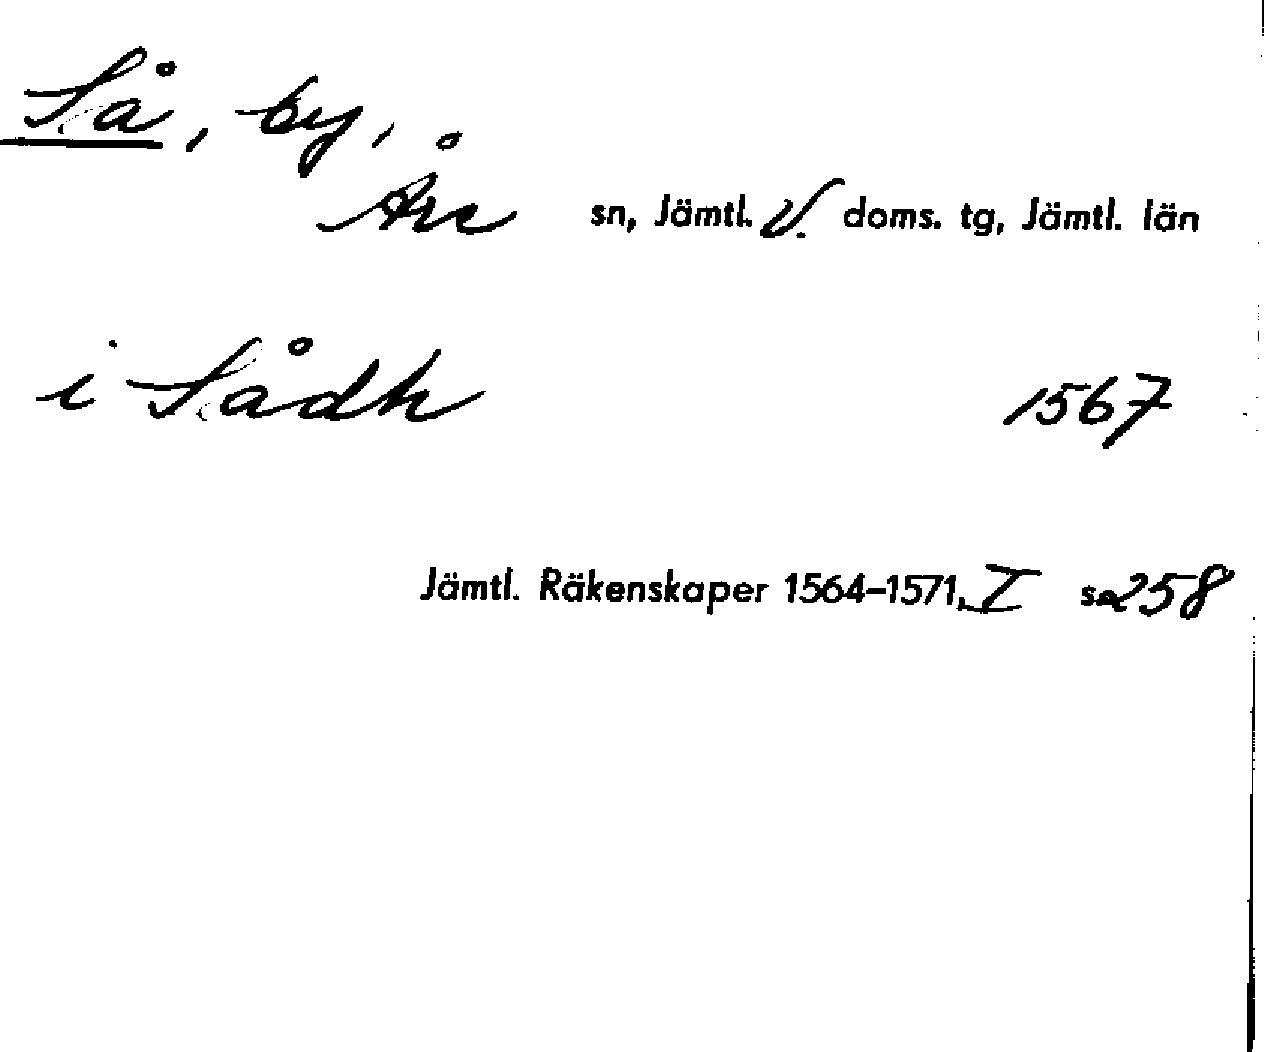 Så, by,
Åre sn, Jämtl. V. doms. tg, Jämtl. län
i Sådh 1567
Jämtl. Räkenskaper 1564–1571, I s. 258